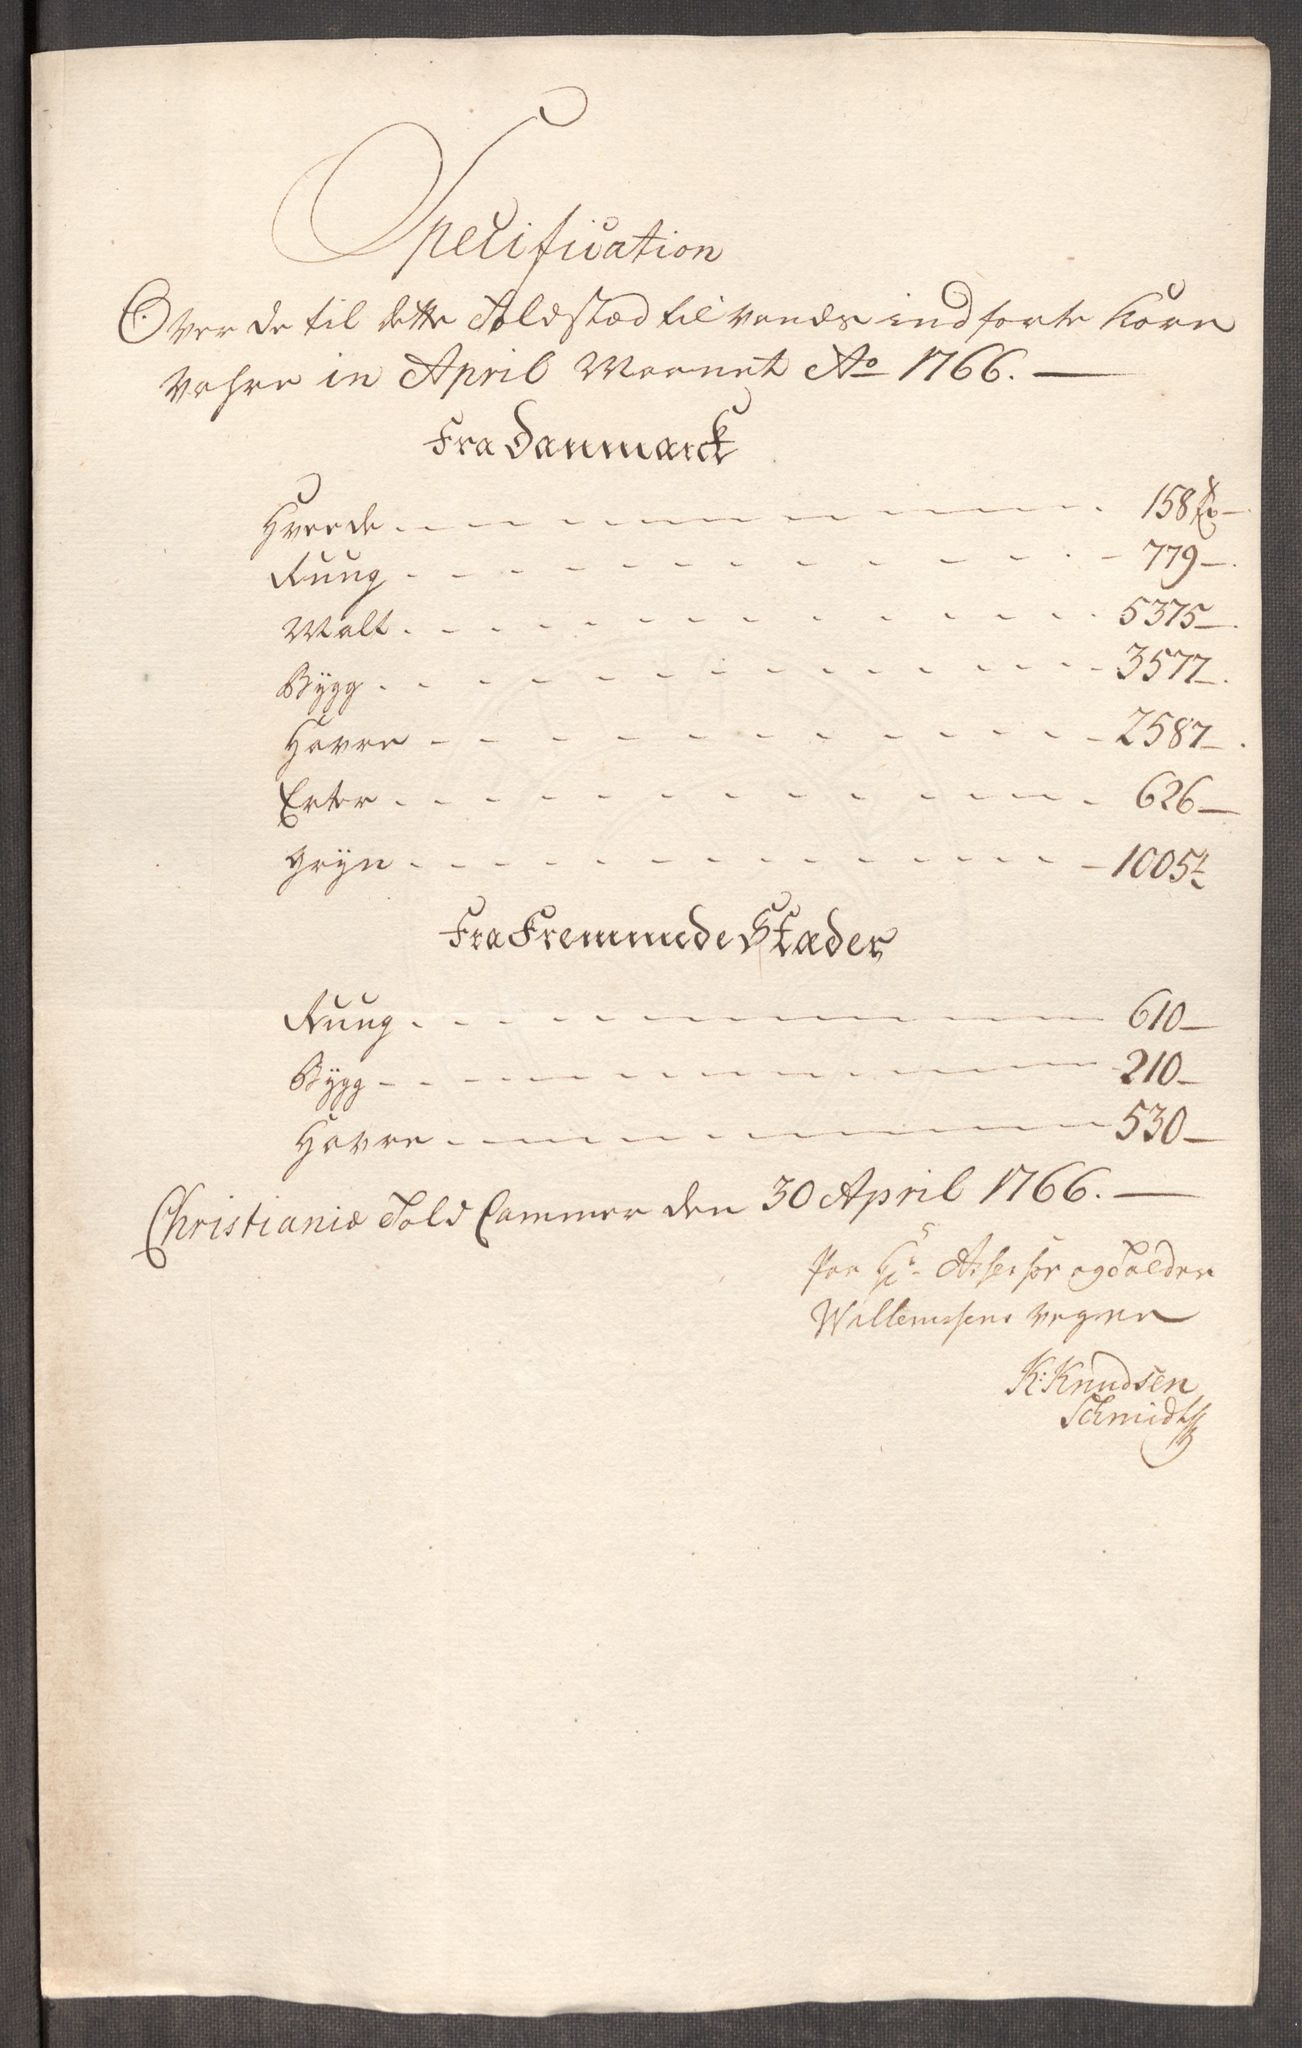 Specification
Over de til dette Toldstæd til vands indførte Korn
Vahre in April Maanet Ao 1766.
Fra Danmarck
Hveede 158
Ruug 779
Malt 5375
Bygg 3577
Havre 2587
Erter 626
Gryn 1005½
Fra Fremmede Stæder
Ruug 610
Bygg 210
Havre 530
Christianiæ Told Cammer den 30 April 1766.
Paa Hr. Assessor og Tolder
Willemsens vegne
K: Knudsen
Schmidt